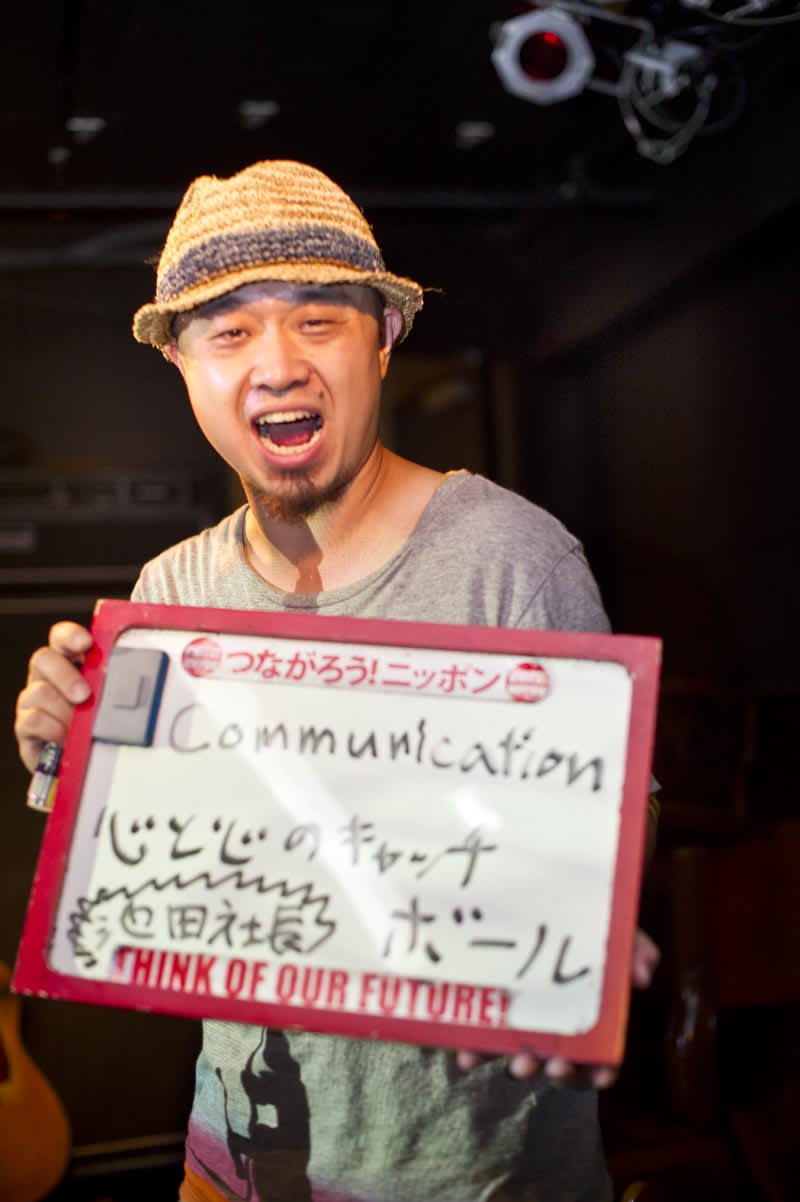 つながろう!ニッポン
Communication
"じとじのキャッチ
ボール
池田社長
THINK OF OUR FUTURE!